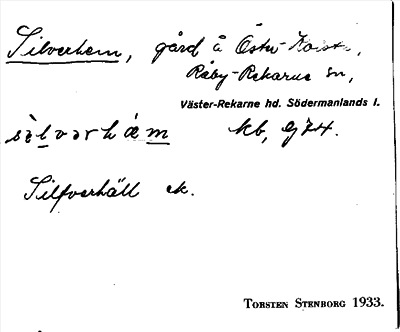 Silverhem, gård å Östra
Råby-Rekarne sn,
Väster-Rekarne hd. Södermanlands l.
kb,
Silfverhäll ek.
TORSTEN STENBORG 1933.